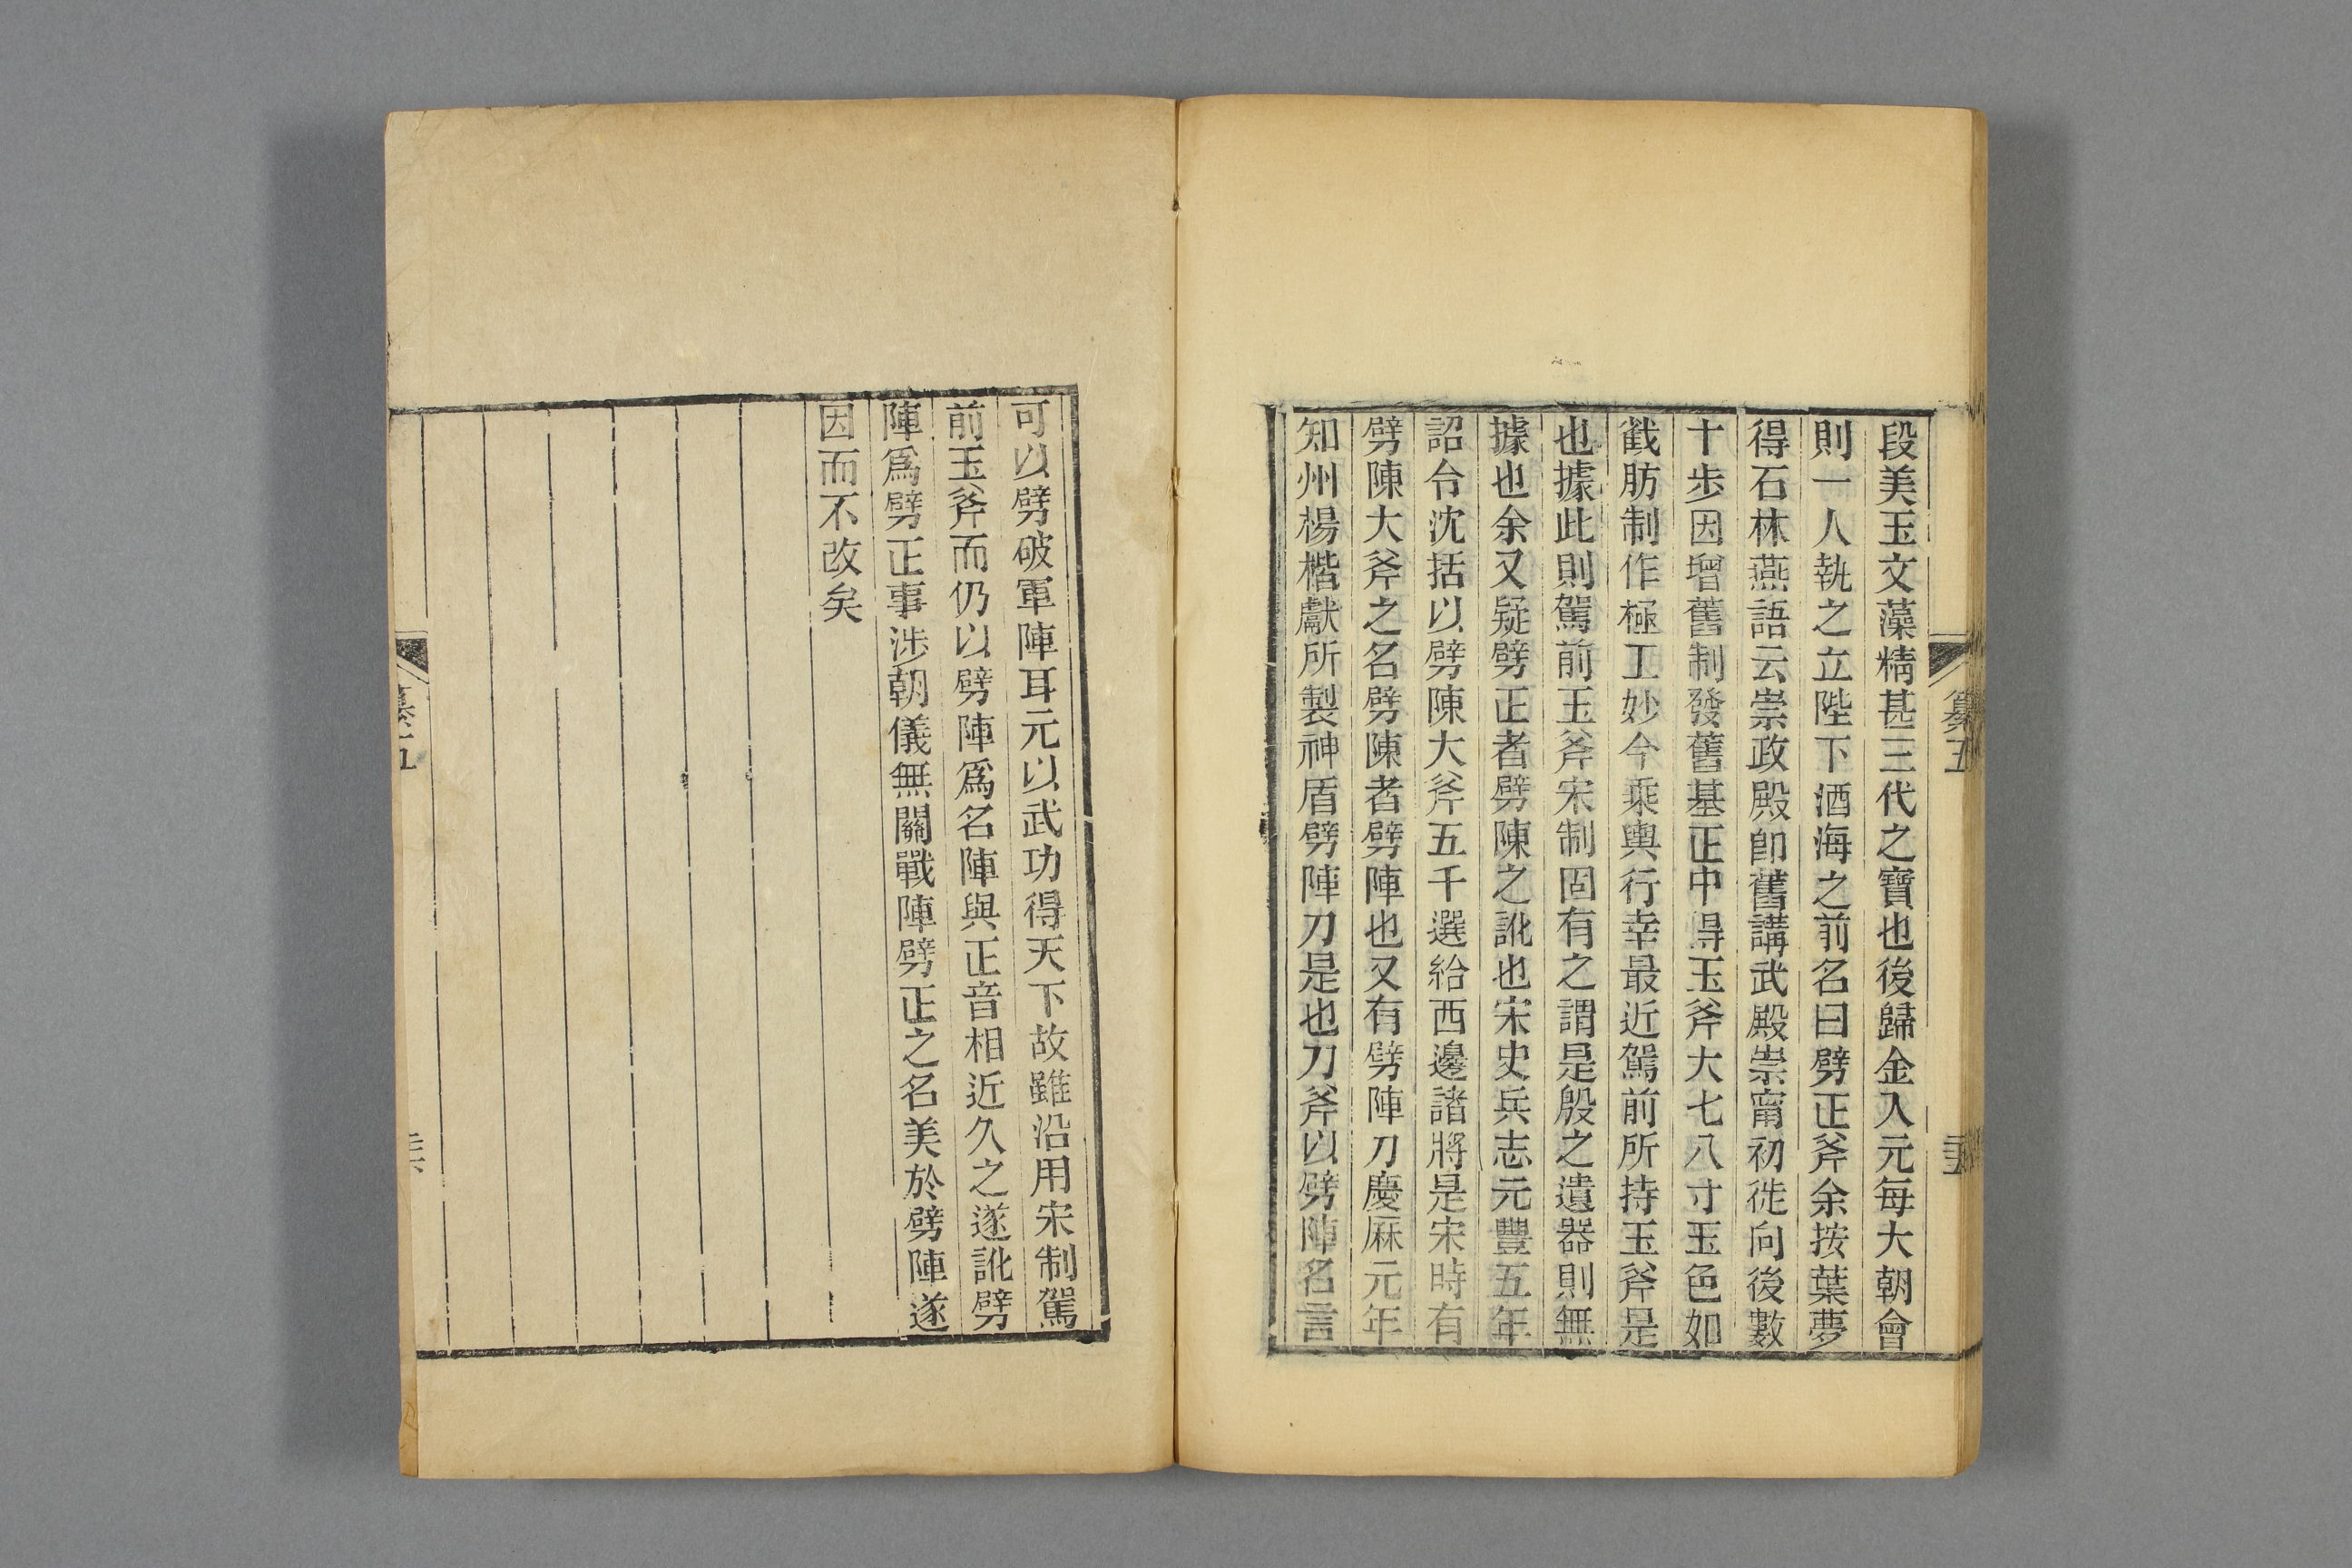 段美玉文藻精甚三代之寶也後歸金入元每大朝會
則一人執之立陛下酒海之前名曰劈正斧余按葉夢
得石林燕語云崇政殿卽舊講武殿崇甯初徙向後數
十步因增舊制發舊基正中得玉斧大七八寸玉色如
截肪制作極工妙今乘輿行幸最近駕前所持玉斧是
也據此則駕前玉斧宋制固有之謂是殷之遺器則無
據也余又疑劈正者劈陳之訛也宋史兵志元豐五年
詔令沈括以劈陳大斧五千選給西邊諸將是宋時有
劈陳大斧之名劈陳者劈陣也又有劈陣刀慶厤元年
知州楊楷獻所製神盾劈陣刀是也刀斧以劈陣名言
纂五
可以劈破軍陣耳元以武功得天下故雖沿用宋制駕
前玉斧而仍以劈陣爲名陣與正音相近久之遂訛劈
陣爲劈正事涉朝儀無關戰陣劈正之名美於劈陣遂
因而不改矣
纂五